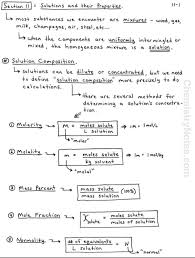 Section 11: Solutions and their Properties.
11-1
↳ most substances we encounter are mixtures - wood, gas,
milk, champagne, air, steel, etc...
↳ when the components are uniformly intermingled or
mixed, the homogeneous mixture is a solution.
Solution Composition.
↳ solutions can be dilute or concentrated, but we need
to define "solution composition" more precisely to do
calculations.
↳ there are several methods for
determining a solution's concentra-
tion.
① Molarity
M = moles solute / L solution
"molar"
② Molality
m = moles solute / kg solvent
"molal"
③ Mass Percent
mass solute / mass solution (100%)
④ Mole Fraction
χ solute = moles solute / moles solution
⑤ Normality
# of equivalents / L solution = N
"normal"